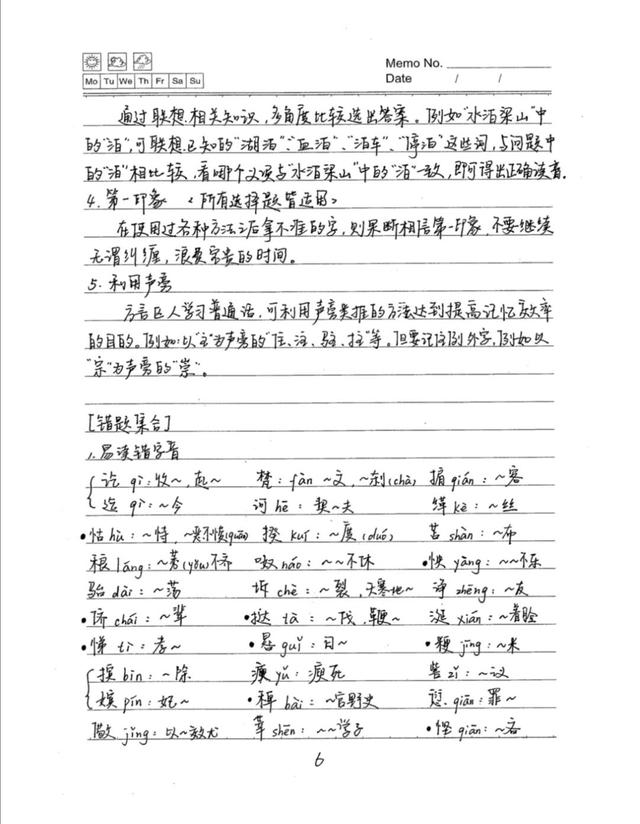 Memo No.
Mo Tu We Th Fr Sa Su
Date / /
通过联想相关知识,多角度比较选出答案。例如"水泊梁山"中
的"泊",可联想已知的"湖泊"、"血泊"、"泊车"、"停泊"这些词,与问题中
的"泊"相比较,看哪个义项与"水泊梁山"中的"泊"一致,即可得出正确读音.
4. 第一印象 <所有选择题皆适用>
在使用过各种方法之后拿不准的字,则果断相信第一印象,不要继续
无谓纠缠,浪费宝贵的时间。
5. 利用声旁
方言区人学习普通话,可利用声旁类推的方法达到提高记忆效率
的目的。例如:以"主"为声旁的"住、注、驻、拄"等。但要记住例外字,例如以
"宗"为声旁的"崇"。
[错题集合]
1. 易读错字音
讫 qì:收~,起~ 梵:fàn ~文,~刹(chà) 掮 qián:~客
迄 qì:~今 诃 hē:契~夫 缂 kè:~丝
•怙 hù:~恃, 揆 kuí:~度(duó) 苫 shàn:~布
稂 láng:~莠(yǒu)不齐 呶 náo:~~不休 •怏 yàng:~~不乐
骀 dài:~荡 坼 chè:~裂,天寒地~ 诤 zhèng:~友
•侪 chái:~辈 •挞 tà:~伐,鞭~ 涎 xián:~着脸
•悌 tì:孝~ •晷 guǐ:日~ •粳 jīng:~米
摈 bìn:~除 瘐 yǔ:瘐死 訾 zǐ:~议
嫔 pín:妃~ •稗 bài:~官野史 愆 qiān:罪~
儆 jǐng:以~效尤 莘 shēn:~~学子 •悭 qiān:~吝
6